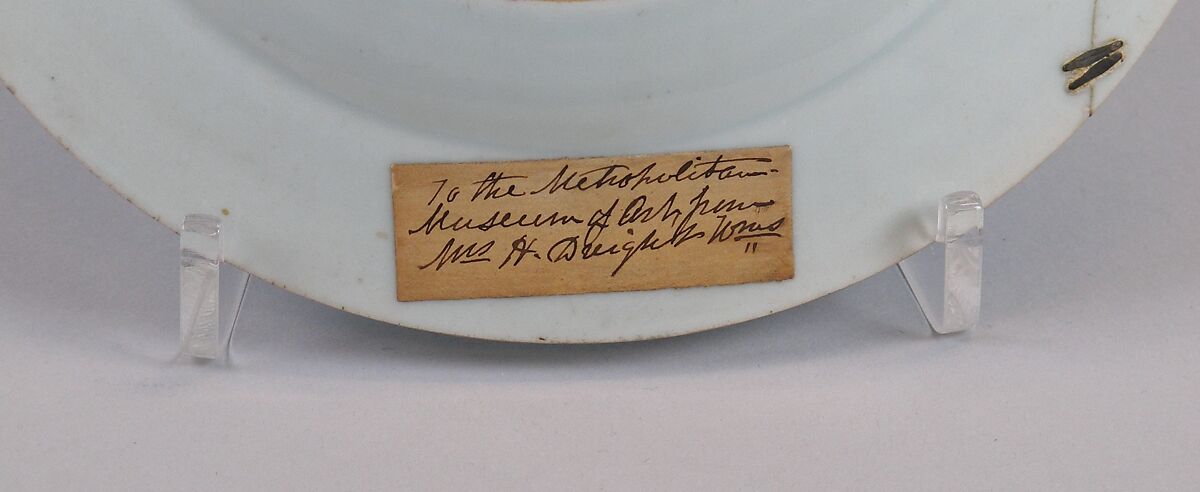 To the Metropolitan
Museum of Art, from
Mrs H. Dwight Wms